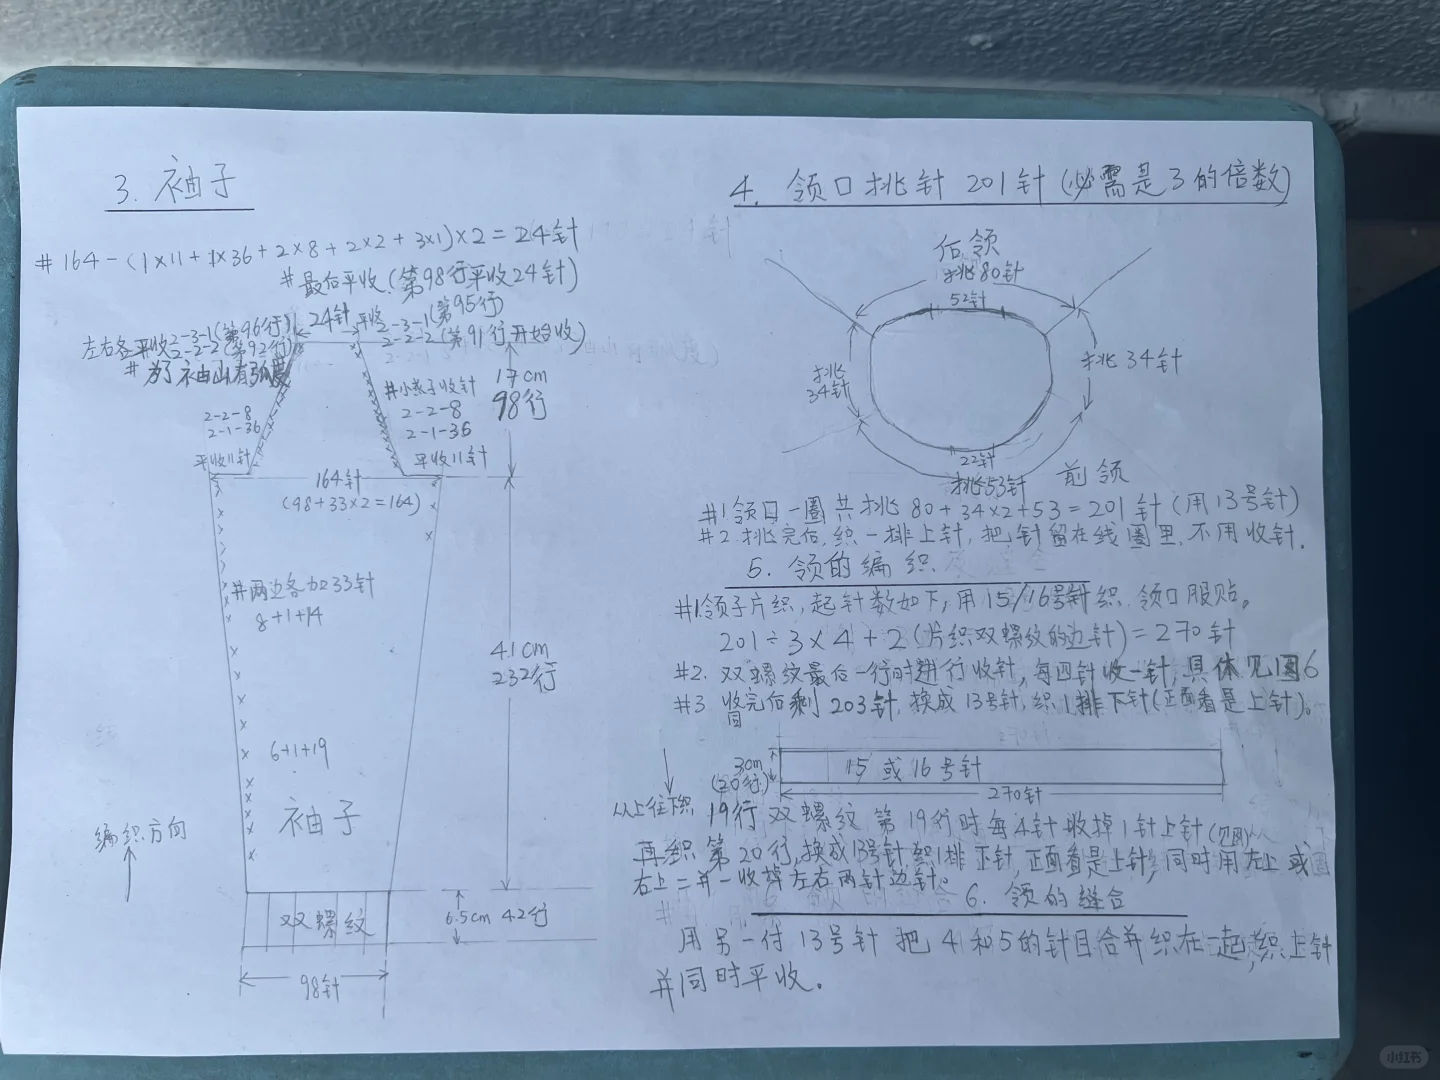 3. 袖子
# 164-(1×11+1×36+2×8+2×2+3×1)×2=24针
# 最后平收(第98行平收24针)
24针 平收
左右各平收2-3-1(第96行)
2-2-2(第92行)
2-3-1(第95行)
2-2-2(第91行开始收)
# 为了袖山有弧度
2-2-8
2-1-36
平收11针
#小燕子收针
2-2-8
2-1-36
平收11针
17cm
98行
164针
(98+33×2=164)
#两边各加33针
8+1+14
6+1+19
41cm
232行
袖子
编织方向
双螺纹
6.5cm 42行
98针
4. 领口挑针 201针(必需是3的倍数)
后领
挑80针
52针
挑
34针
挑34针
22针
挑53针
前领
#1领口一圈共挑80+34×2+53=201针(用13号针)
#2.挑完后,织一排上针,把针留在线圈里,不用收针.
5. 领的编织
#1领子片织,起针数如下,用15/16号针织,领口服贴。
201÷3×4+2(片织双螺纹的边针)=270针
#2. 双螺纹最后一行时进行收针,每四针收一针,具体见图6
#3 收完后剩203针,换成13号针,织1排下针(正面看是上针)。
3cm
(20行)
15或16号针
270针
从上往下织
19行双螺纹 第19行时每4针收掉1针上针
再织第20行,换成13号针织1排下针,正面看是上针,同时用左上或
右上二并一收掉左右两针边针。
6. 领的缝合
用另一付13号针把4和5的针目合并织在一起,织上针
并同时平收。
小红书